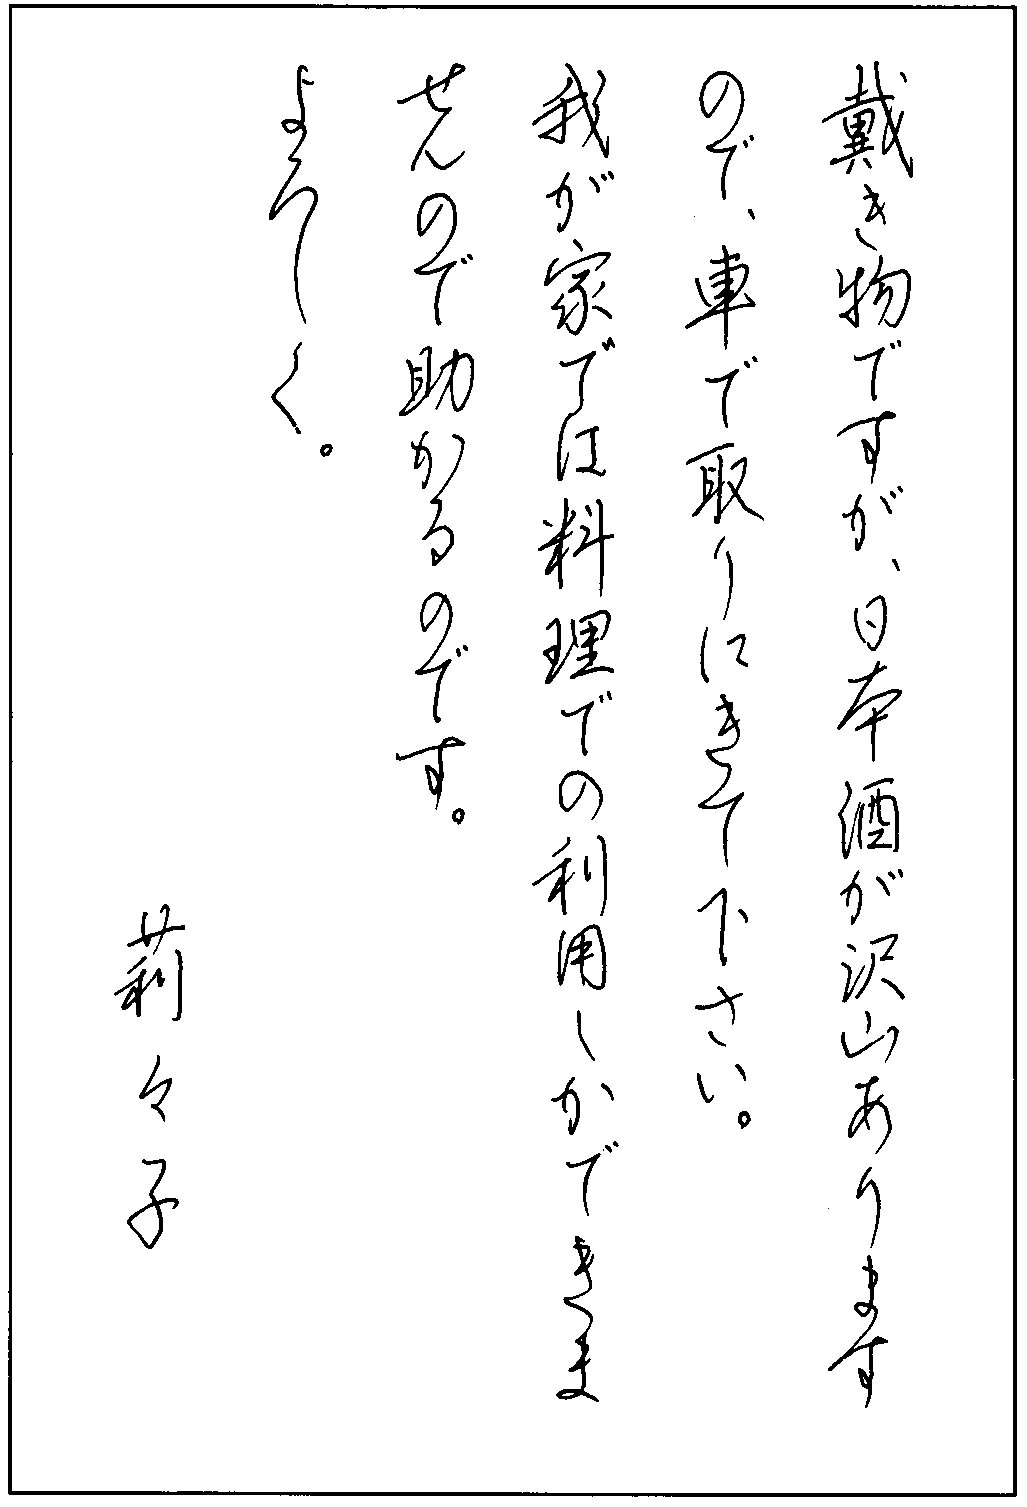 戴き物ですが、日本酒が沢山あります
ので、車で取りにきて下さい。
我が家では料理での利用しかできま
せんので助かるのです。
よろしく。
莉々子